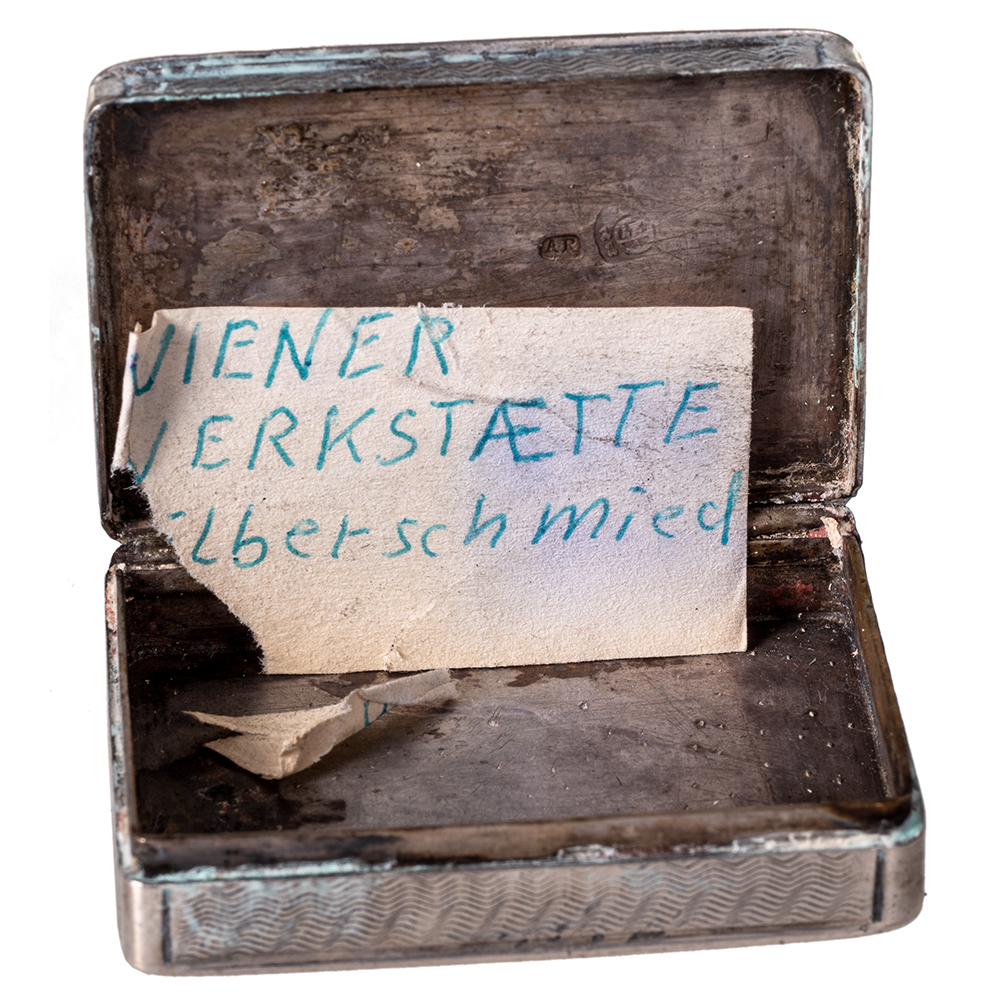 WIENER
WERKSTÆTTE
ilberschmied